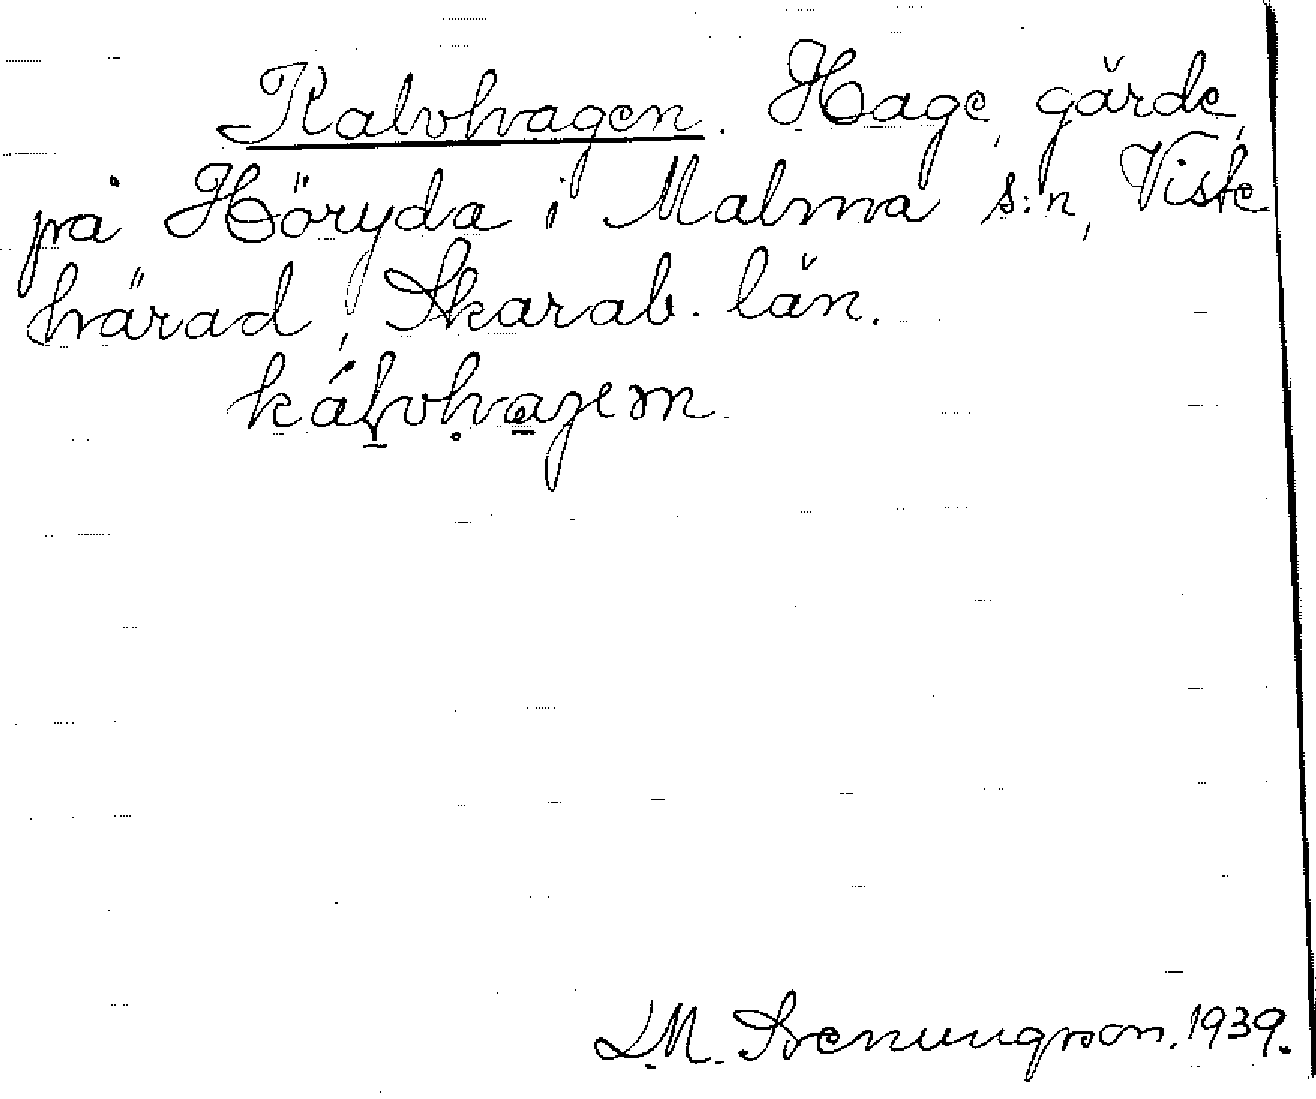 Kalvhagen. Hage, gärde,
på Höryda i Malma s:n, Viste
härad, Skarab. län.
kálvhagem
L.M. Svenungsson. 1939.